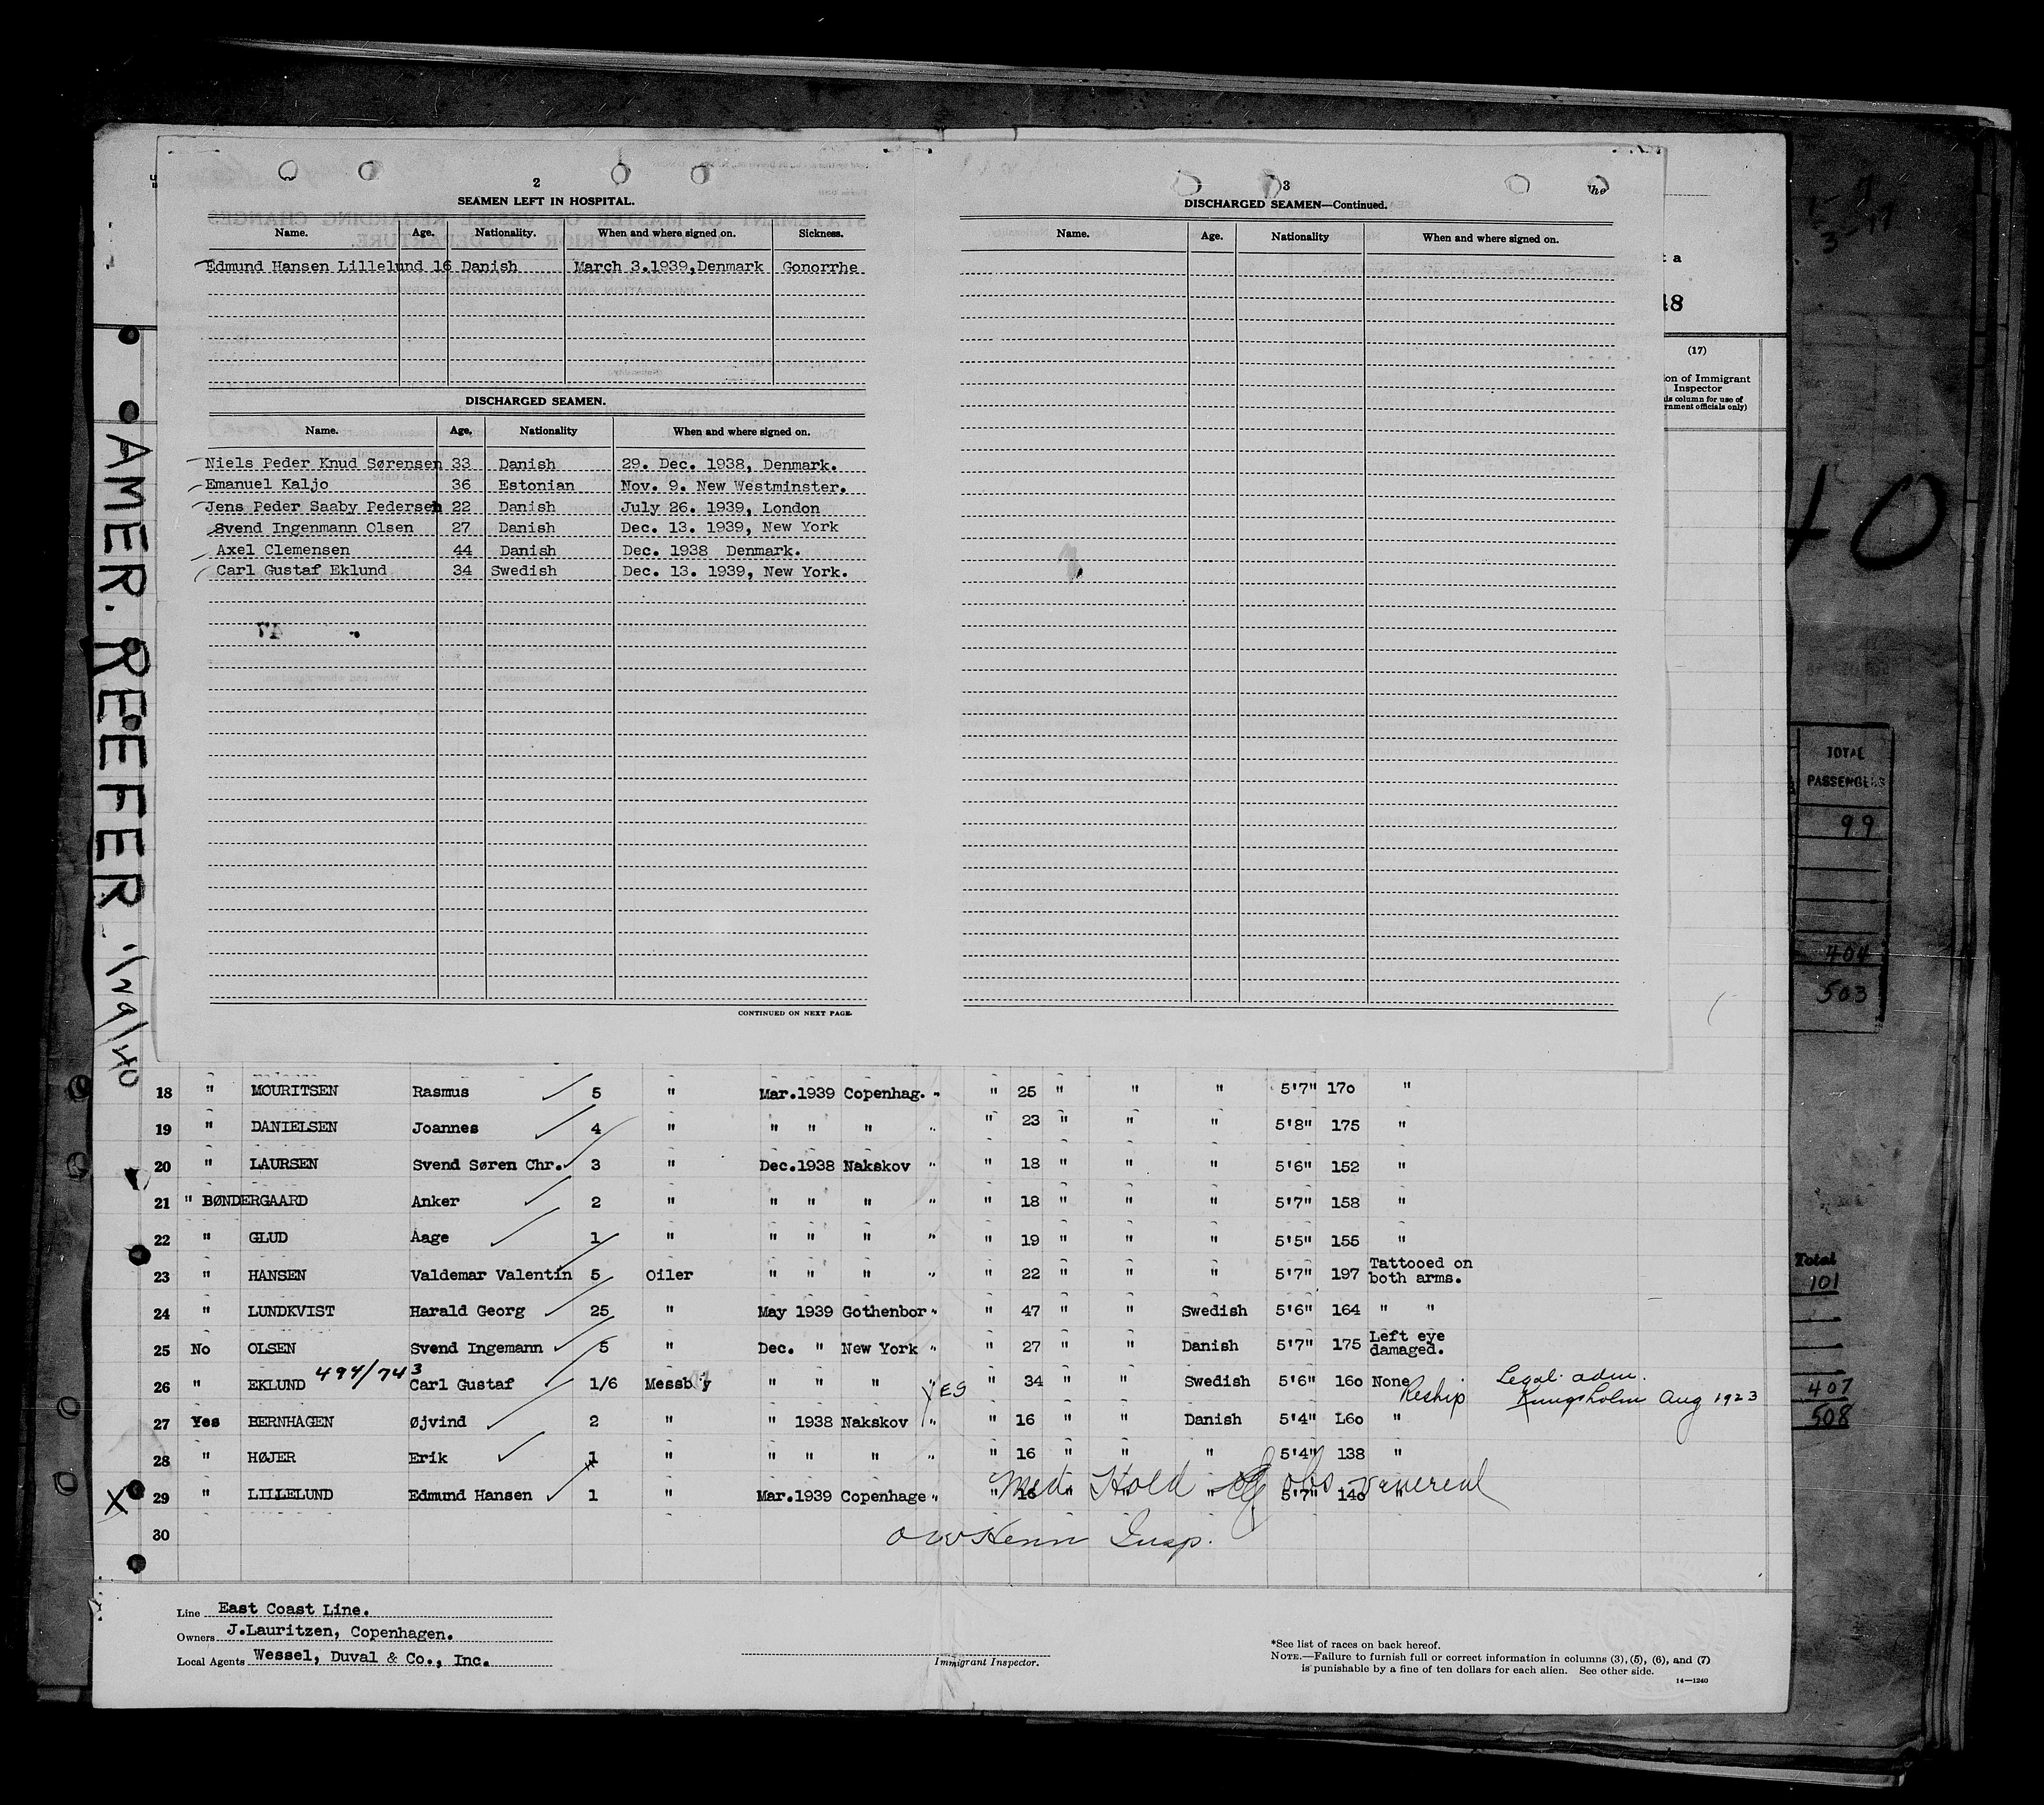 2
SEAMEN LEFT IN HOSPITAL.
Name. Age. Nationality. When and where signed on. Sickness.
Edmund Hansen Lillelund 16 Danish March 3.1939,Denmark Gonorrhe
DISCHARGED SEAMEN.
Name. Age. Nationality When and where signed on.
Niels Peder Knud Sørensen 33 Danish 29. Dec. 1938, Denmark.
Emanuel Kaljo 36 Estonian Nov. 9. New Westminster.
Jens Peder Saaby Pedersen 22 Danish July 26. 1939, London
Svend Ingenmann Olsen 27 Danish Dec. 13. 1939, New York
Axel Clemensen 44 Danish Dec. 1938 Denmark.
Carl Gustaf Eklund 34 Swedish Dec. 13. 1939, New York.
CONTINUED ON NEXT PAGE.
3
he
DISCHARGED SEAMEN—Continued.
Name. Age. Nationality When and where signed on.
t a
18
(17)
on of Immigrant
Inspector
is column for use of
rnment officials only)
AMER. REEFER 1/29/40
40
TOTAL
PASSENGERS
99
404
503
Total
101
407
508
18 " MOURITSEN Rasmus 5 " Mar.1939 Copenhag. " " 25 " " " 5'7" 170 "
19 " DANIELSEN Joannes 4 " " " " " " 23 " " " 5'8" 175 "
20 " LAURSEN Svend Søren Chr. 3 " Dec.1938 Nakskov " " 18 " " " 5'6" 152 "
21 " BØNDERGAARD Anker 2 " " " " " " 18 " " " 5'7" 158 "
22 " GLUD Aage 1 " " " " " " 19 " " " 5'5" 155 "
23 " HANSEN Valdemar Valentin 5 Oiler " " " " " 22 " " " 5'7" 197 Tattooed on both arms.
24 " LUNDKVIST Harald Georg 25 " May 1939 Gothenbor " " 47 " " Swedish 5'6" 164 " "
25 No OLSEN Svend Ingemann 5 " Dec. " New York " " 27 " " Danish 5'7" 175 Left eye damaged.
26 " EKLUND 494/743 Carl Gustaf 1/6 Messb y " " " " YES " 34 " " Swedish 5'6" 16o None Reship Legal adm. Kungsholm Aug 1923
27 Yes BERNHAGEN Øjvind 2 " " 1938 Nakskov " " 16 " " Danish 5'4" L6o "
28 " HØJER Erik 1 " " " " " " 16 " " " 5'4" 138 "
29 X " LILLELUND Edmund Hansen 1 " Mar.1939 Copenhage " " 16 " " " 5'7" 14o "
Med. Hold obs venereal
30
O W Henn Insp.
Line East Coast Line.
Owners J.Lauritzen, Copenhagen.
Local Agents Wessel, Duval & Co., Inc.
Immigrant Inspector.
*See list of races on back hereof.
NOTE.—Failure to furnish full or correct information in columns (3), (5), (6), and (7)
is punishable by a fine of ten dollars for each alien. See other side.
14—1240